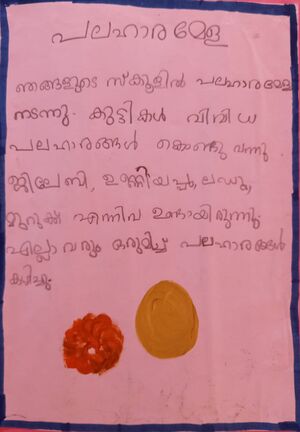 പലഹാരമേള
ഞങ്ങളുടെ സ്കൂളിൽ പലഹാരമേള
നടന്നു. കുട്ടികൾ വിവിധ
പലഹാരങ്ങൾ കൊണ്ടു വന്നു.
ജിലേബി, ഉണ്ണിയപ്പം, ലഡു,
മുറുക്ക് എന്നിവ ഉണ്ടായിരുന്നു.
എല്ലാവരും ഒരുമിച്ച് പലഹാരങ്ങൾ
കഴിച്ചു.